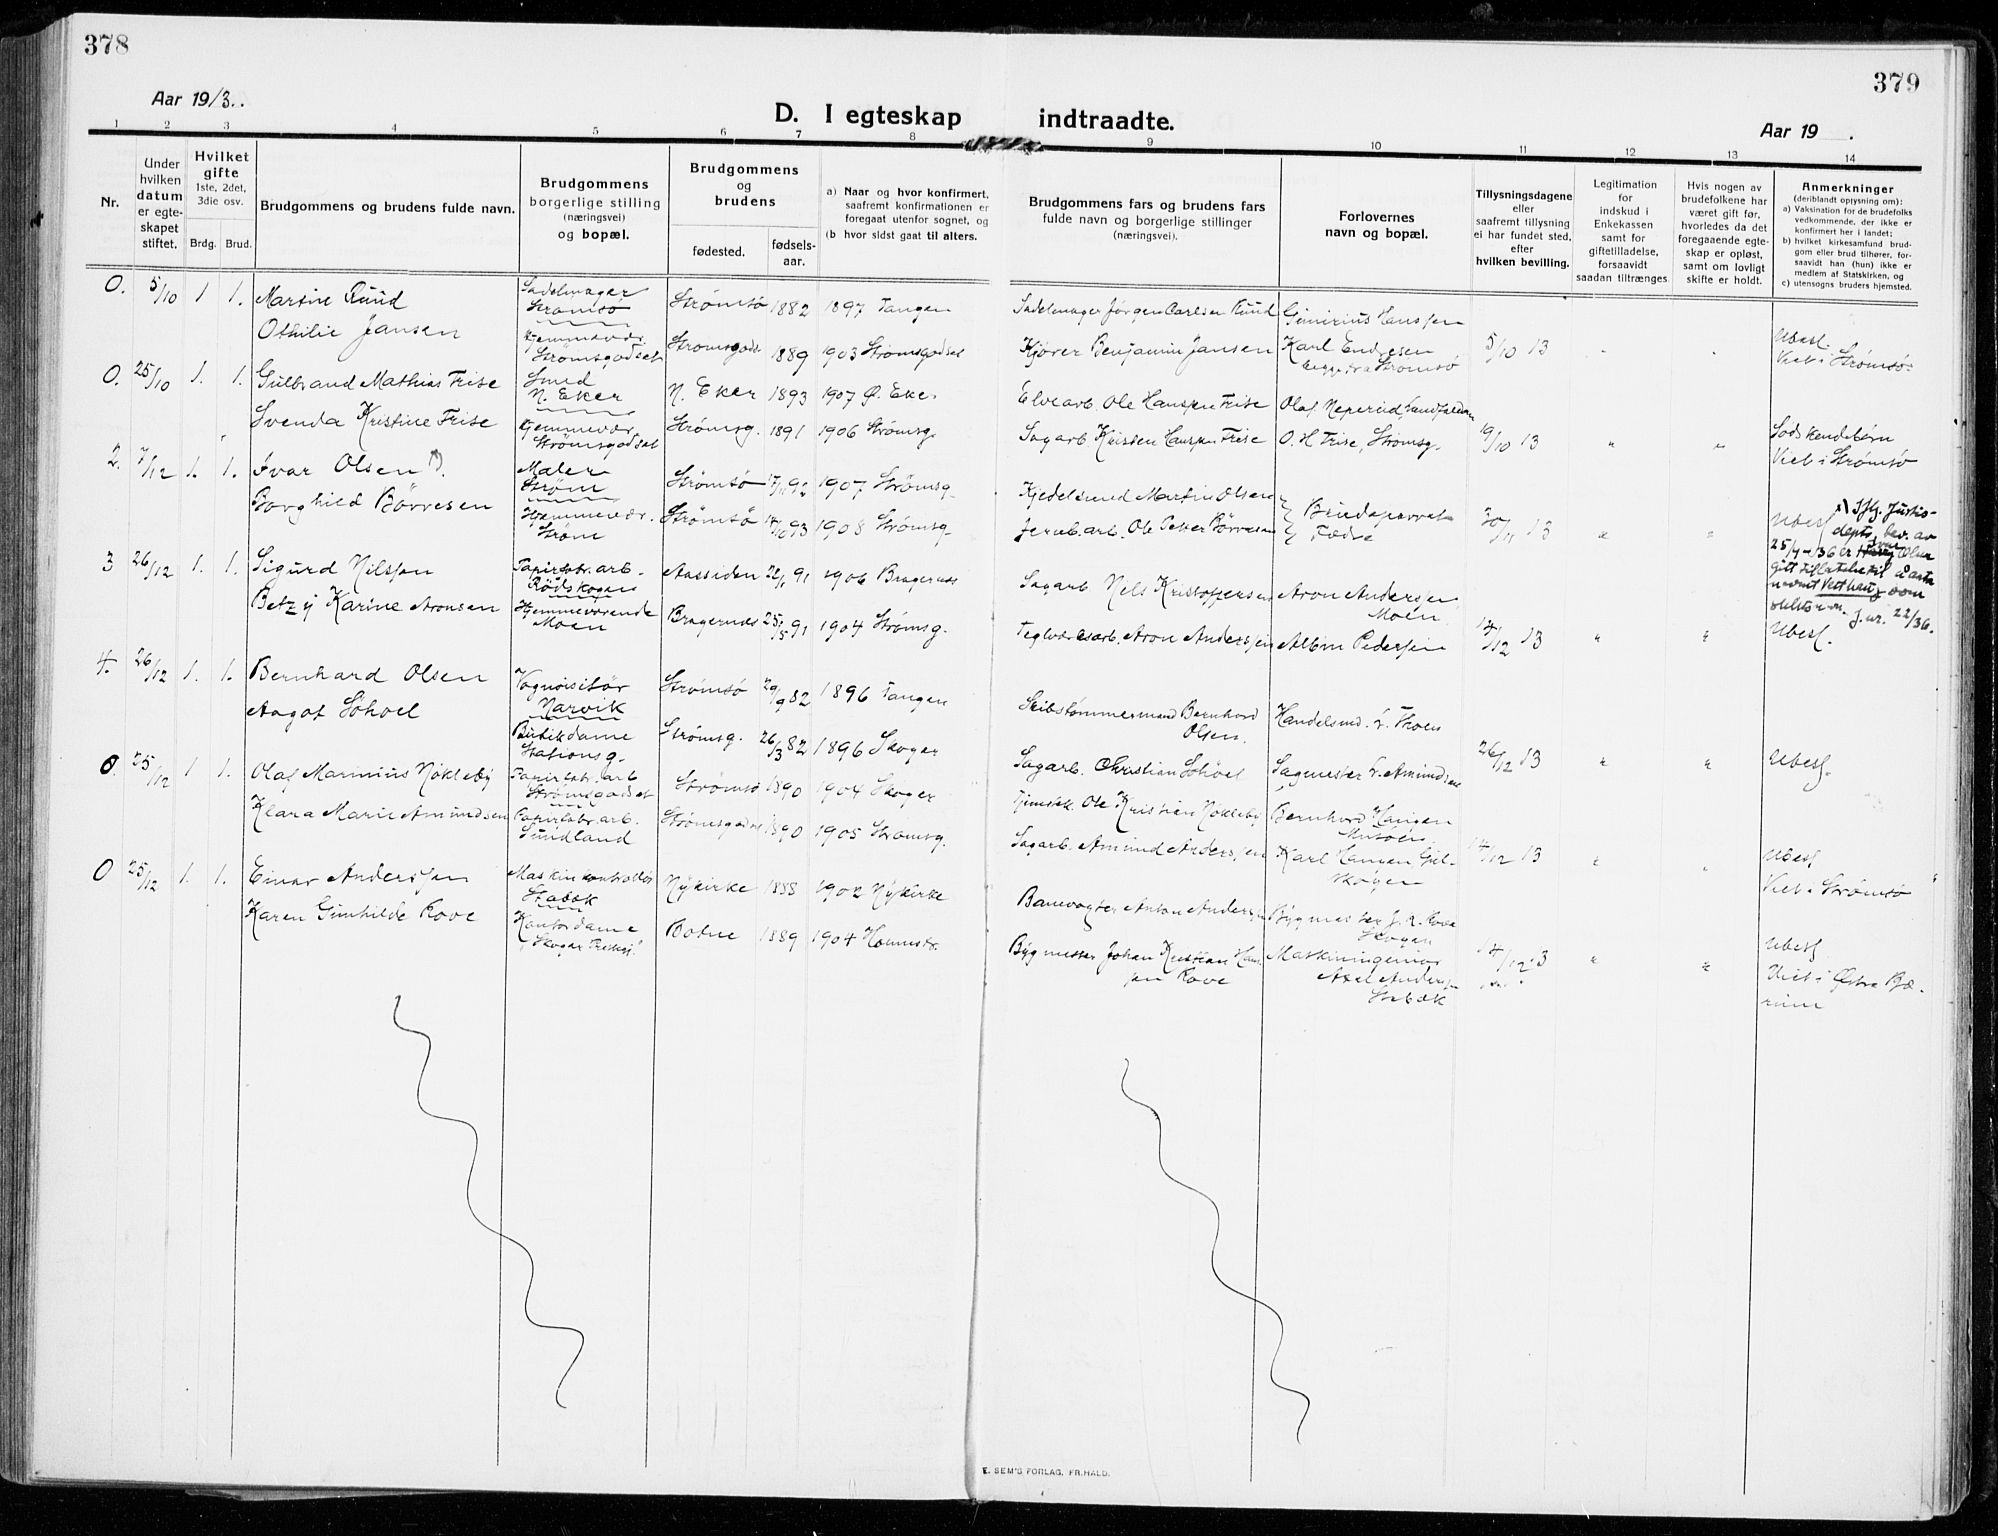 378
379
Aar 1913.
D. I egteskap indtraadte.
Aar 19 .
1 2 3 4 5 6 7 8 9 10 11 12 13 14
Nr.
Under hvilken datum er egteskapet stiftet.
Hvilket gifte
1ste, 2det, 3die osv.
Brdg. Brud.
Brudgommens og brudens fulde navn.
Brudgommens borgerlige stilling (næringsvei) og bopæl.
Brudgommens og brudens
fødested.
fødselsaar.
a) Naar og hvor konfirmert, saafremt konfirmationen er foregaat utenfor sognet, og
(b hvor sidst gaat til alters.
Brudgommens fars og brudens fars fulde navn og borgerlige stillinger (næringsvei).
Forlovernes navn og bopæl.
Tillysningsdagene eller saafremt tillysning ei har fundet sted, efter hvilken bevilling.
Legitimation for indskud i Enkekassen samt for giftetilladelse, forsaavidt saadan tiltrænges
Hvis nogen av brudefolkene har været gift før, hvorledes da det foregaaende egteskap er opløst, samt om lovligt skifte er holdt.
Anmerkninger
(deriblandt oplysning om):
a) Vaksination for de brudefolks vedkommende, der ikke er konfirmert her i landet;
b) hvilket kirkesamfund brudgom eller brud tilhører, forsaavidt han (hun) ikke er medlem af Statskirken, og
c) utensogns bruders hjemsted.
0. 5/10 1 1. Martin Ruud Sadelmager Strømsø Strømsø 1882 1897 Tangen Sadelmager Jørgen Carlsen Ruud Hanssen
Othilie Jansen Hjemmevær. Strømsgodset Strømsgods 1889 1903 Strømsgodset Kjører Benjamin Jansen Karl Endresen begge fra Strømsø 5/10 13 " " Ubesl. Viet i Strømsø.
0. 25/10 1. 1. Gulbrand Mathias Frise Smed N. Eker N. Eker 1893 1907 Ø. Eker Elvearb. Ole Hanssen Frise Olaf Neperud,
Svenda Kristine Frise Hjemmevær. Strømsgodset Strømsg. 1891 1906 Strømsg. Sagarb. Kristen Hanssen Frise O. H. Frise, Strømsg. 19/10 13 " " Sødskendebørn Viet i Strømsø
2. 7/12 1. 1. Ivar Olsen Maler Strøm Strømsø 17/11 92 1907 Strømsg. Kjedelsmed Martin Olsen
Borghild Børresen Hjemmevær. Strøm Strømsø 14/10 93 1908 Strømsg. Jernb.arb. Ole Peter Børresen Brudeparrets Fædre 30/11 13 " " Ubesl
Iflg. Justisdepts. brev. av 25/4-36 er Ivar Olsen gitt tillatelse til å anta navnet Vesthaug som slektsnavn. J.nr. 22/36.
3 26/12 1. 1. Sigurd Nilssen Papirfabr.arb. Rødskogen Aassiden 22/1 91 1906 Bragernes Sagarb Nels Kristoffersen Aron Andersen, Moen.
Betzy Karine Aronsen Hjemmeværende Moen Bragernes 25/5 91 1904 Strømsg. Teglværksarb. Aron Anderssen Albin Pedersen 14/12 13 " " Ubesl.
4. 26/12 1. 1. Bernhard Olsen Vognvisitør Narvik Strømsø 29/9 82 1896 Tangen Skibstømmermand Bernhard Olsen. Handelsmd. Thoen
Aagot Søhoel Butikdame Stationsg. Strømsg. 26/3 82 1896 Skoger Sagarb. Christian Søhoel Sagmester Amundsen 26/12 13 " " Ubesl.
0. 25/12 1 1. Olaf Marinius Nøkleby Papirfabr.arb Strømsgodset Strømsø 1890 1904 Skoger Ole Kristian Nøkleby Bernhard Haugen
Klara Marie Amundsen Papirfabr.arb. Sundland Strømsgodset 1890 1905 Strømsg. Sagarb. Amund Anderssen Karl Hansen Gulskogen 14/12 13 " " Ubesl Viet i Strømsø
0 25/12 1. 1. Einar Anderssen Maskinkontrollør Stabæk Nykirke 1888 1902 Nykirke Banevogter Anton Anderssen Bygmester J. K. Rove Skogen
Karen Gunhilde Rove Kontordame Botne 1889 1904 Holmestr. Bygmester Johan Kristian Hanssen Rove Maskiningeniør Axel Anderssen Stabæk 14/12 13 " " Ubesl Viet i Østre Bærum
E. SEM'S FORLAG, FR.HALD.